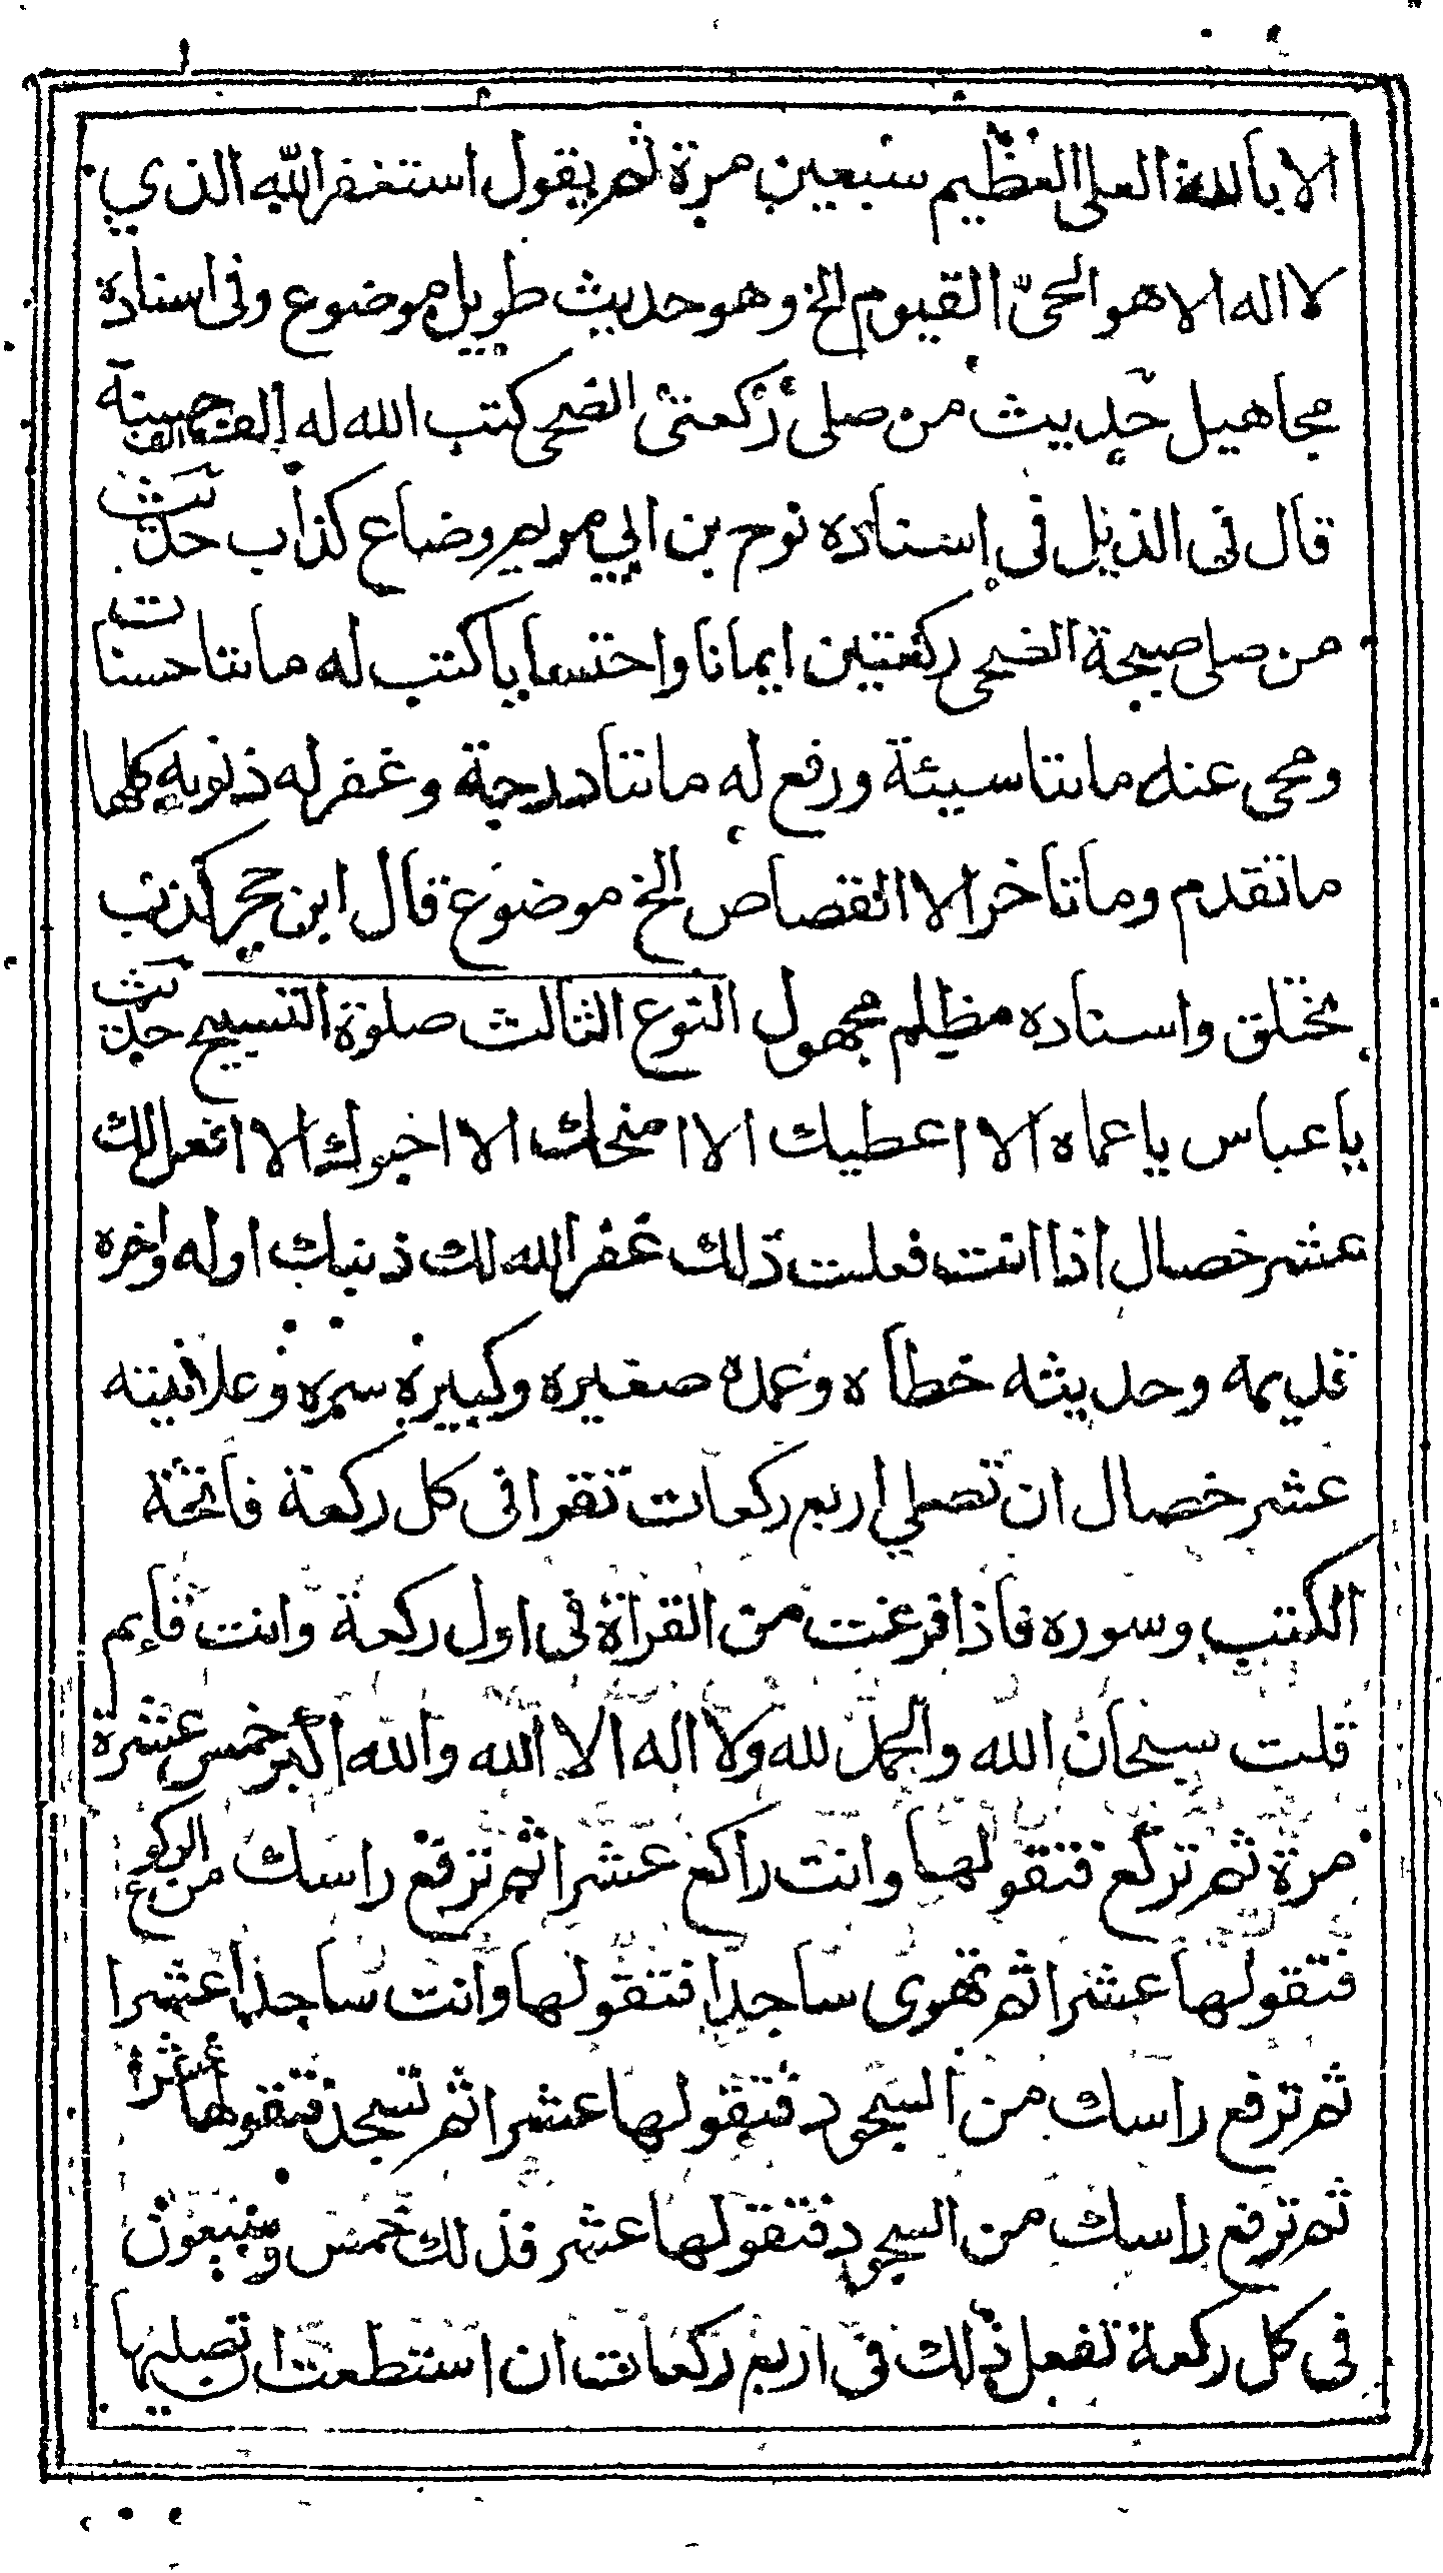 الا بالله العلى العظيم سبعين مرة ثم يقول استغفر الله الذي
لا اله الا هو الحىّ القيوم الخ وهو حديث طويل موضوع وفى اسناده
مجاهيل حديث من صلى ركعتى الضحى كتب الله له الف الف حسنة
قال فى الذيل فى اسناده نوح بن ابي مريم وضاع كذاب حديث
من صلى صبيحة الضحى ركعتين ايمانا واحتسابا كتب له مائتا حسنات
ومحى عنه مائتا سيئة ورفع له مائتا درجة وغفر له ذنوبه كلها
ما تقدم وما تاخر الا القصاص الخ موضوع قال ابن حجر كذب
مختلق واسناده مظلم مجهول النوع الثالث صلوة التسبيح حديث
يا عباس يا عماه الا اعطيك الا امنحك الا اخبرك الا افعل لك
عشر خصال اذا انت فعلت ذلك غفر الله لك ذنبك اوله واخره
قديمه وحديثه خطاه وعمده صغيره وكبيره سره وعلانيته
عشر خصال ان تصلي اربع ركعات تقرا فى كل ركعة فاتحة
الكتب وسوره فاذا فرغت من القراة فى اول ركعة وانت قائم
قلت سبحان الله والحمد لله ولا اله الا الله والله اكبر خمس عشرة
مرة ثم تركع فتقولها وانت راكع عشرا ثم ترفع راسك من الركوع
فتقولها عشرا ثم تهوى ساجدا فتقولها وانت ساجدا عشرا
ثم ترفع راسك من السجود فتقولها عشرا ثم تسجد فتقولها عشرا
ثم ترفع راسك من السجود فتقولها عشر فذلك خمس وسبعون
فى كل ركعة تفعل ذلك فى اربع ركعات ان استطعت ان تصليها